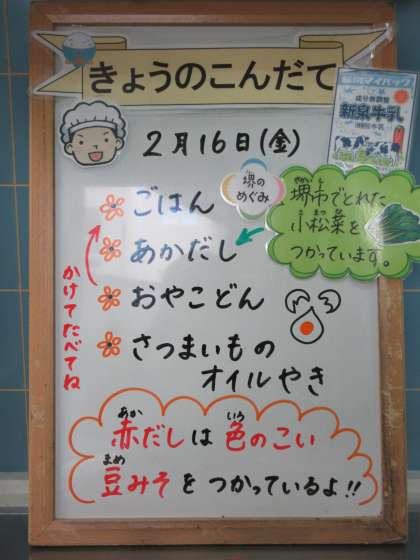 きょうのこんだて
成分無調整
新泉牛乳
2月16日(金)
堺の
めぐみ
堺市でとれた
小松菜を
つかっています。
ごはん
あかだし
おやこどん
さつまいもの
オイルやき
かけてたべてね
赤だしは色のこい
豆みそをつかっているよ!!